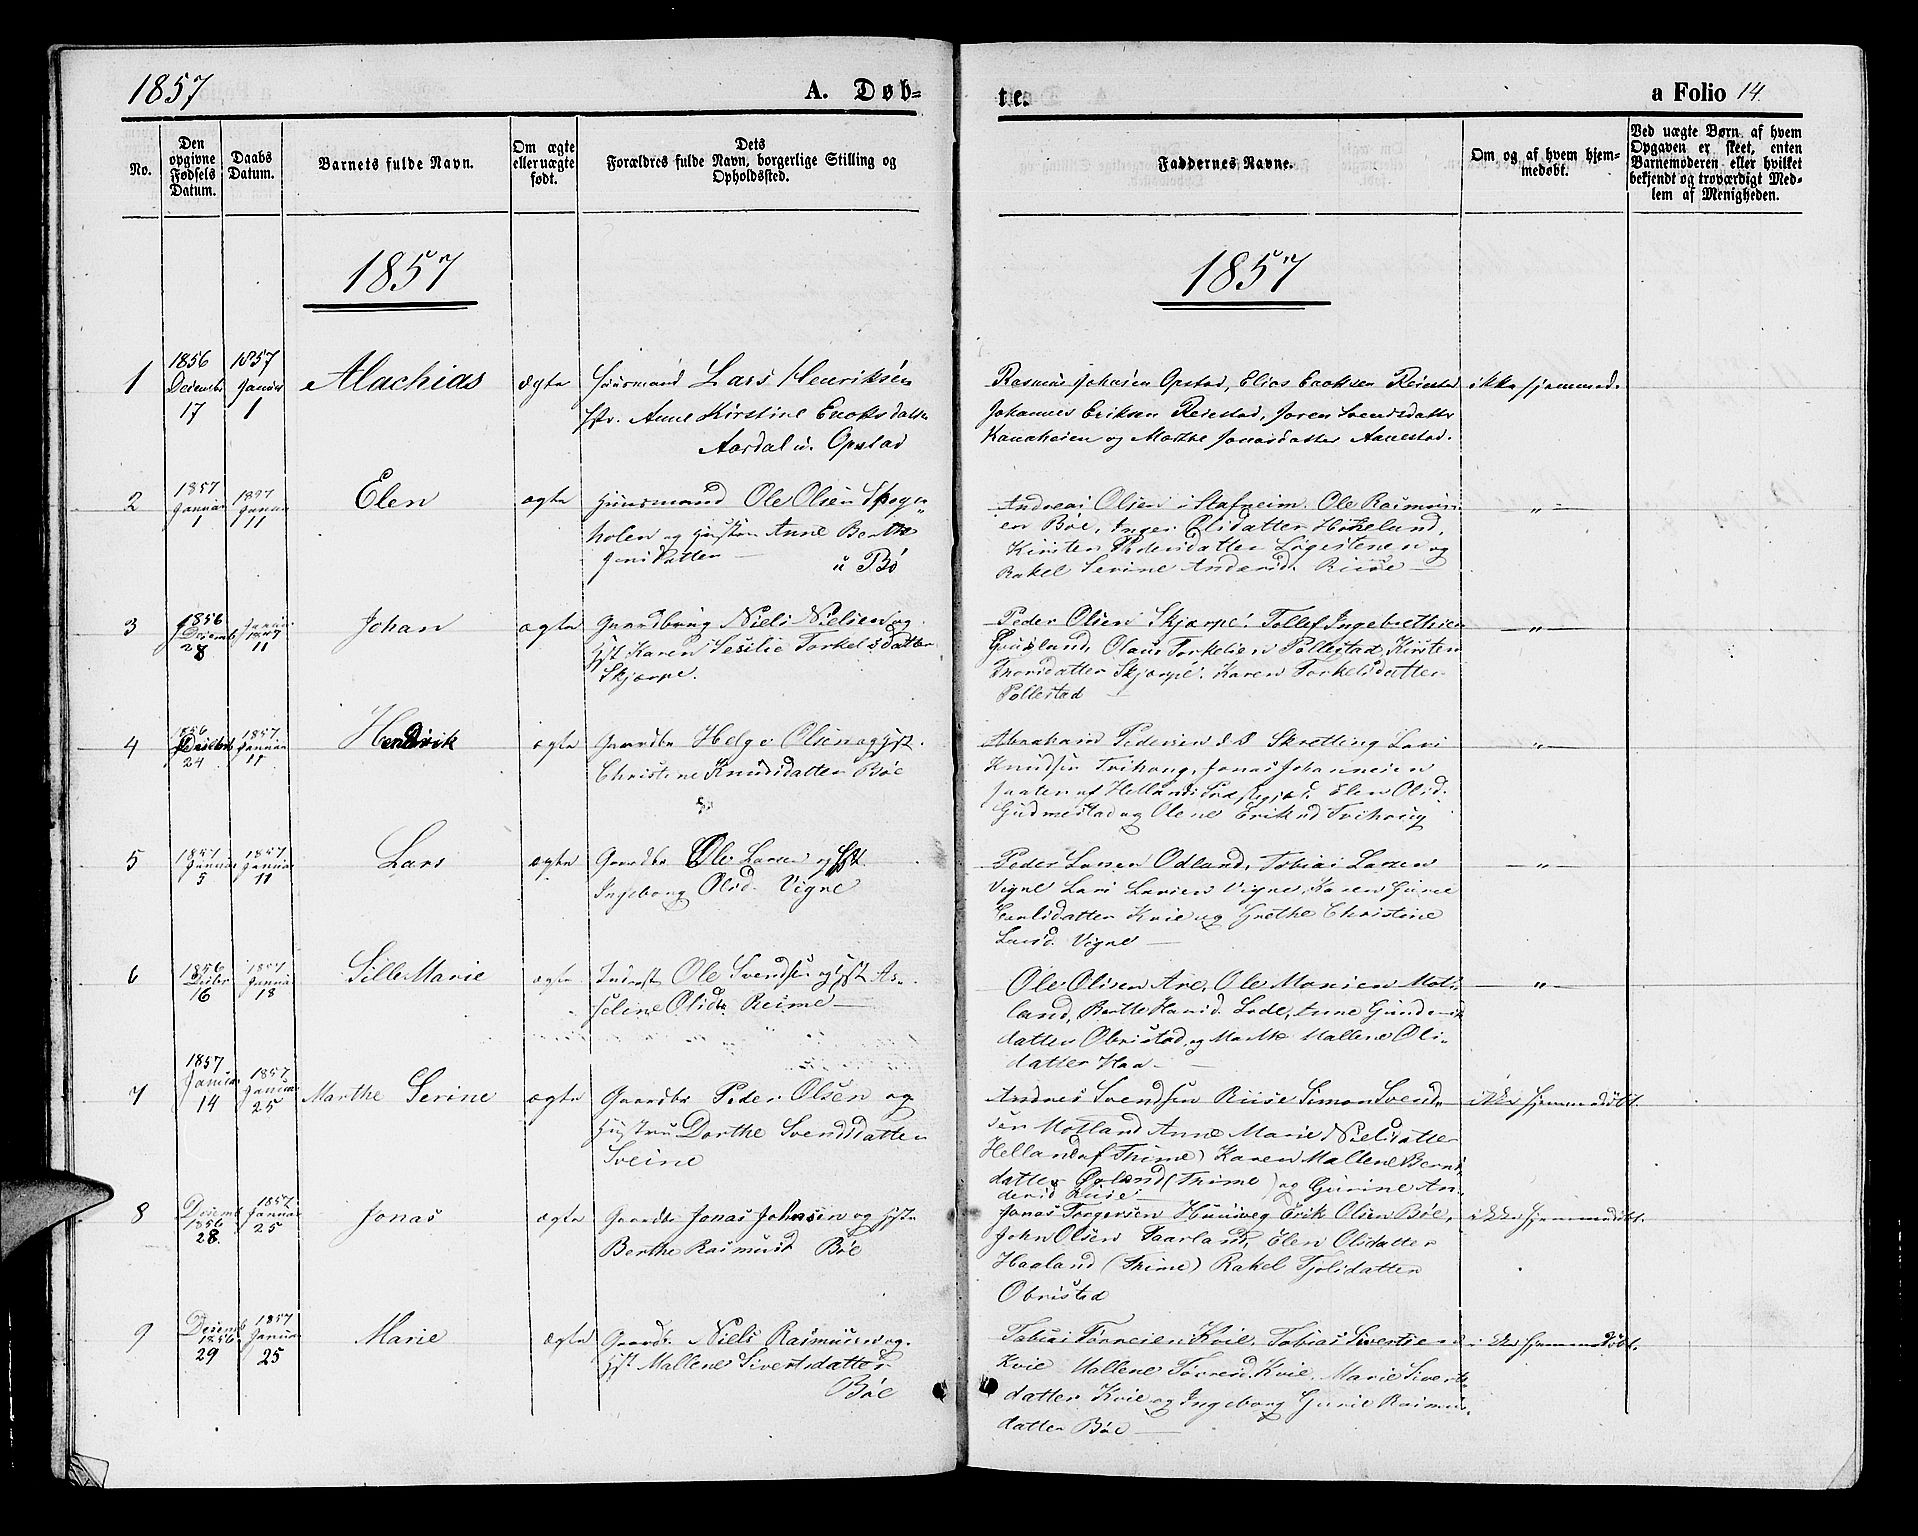 1857
A. Døb-
te.
a Folio 14.
No.
Den
opgivne
Fødsels
Datum.
Daabs
Datum.
Barnets fulde Navn.
Om ægte
eller uægte
født.
Dets
Forældres fulde Navn, borgerlige Stilling og
Opholdssted.
Faddernes Navne.
Om og af hvem hjem-
medøbt.
Ved uægte Børn af hvem
Opgaven er skeet, enten
Barnemøderen eller hvilket
bekjendt og troværdigt Med-
lem af Menigheden.
1857
1857
1
1856
Decembr
17
1857
Januar
1
Malachias
ægte
Huusmand Lars Henriksén
Hstr. Anne Kirstine Enoksdatter
Aardal u. Opstad
Rasmus Johnsen Opstad, Elias Enoksen Reiestad
Johannes Eriksen Reiestad, Soren Svendsdatter
og Marthe Jonasdatter Aanestad.
ikke hjemmed.
2
1857
Januar
1
1857
Januar
11
Elen
ægte
Huusmand Ole Olsen Skog-
holen og Hustru Anne Berthe
Jensdatter
u Bö
Andreas Olsen Stafneim. Ole Rasmus-
en Böe, Inger Olsdatter Hokeland,
Kirsten Pedersdatter Logestenen og
Rakel Serine Andersd. Riise
"
3
1856
Desemb
28
Januar
1857
11
Johan
ægte
Gaardbrug Niels Nielsen og
Hst Karen Sesilie Torkelsdatter
Skjærpe.
Peder Olsen Skjærpe. Tollef Ingebrethsen
Grusland, Olaus Torkelsen Pollestad, Kirsten
Thorsdatter Skjærpe. Karen Torkelsdatter
Pollestad
"
4
1856
Desebr
24
1857
Januar
11
Hendrik
ægte
Gaardbr Helge Olsen og Hst.
Christine Knudsdatter Böe
Abraham Pedersen Skretting Lars
Knudsen Tvihoug, Jonas Johannesen
af Helland Elen Olsd.
Gudmestad og Olene Eriksd Tvihoug
"
5
1857
Januar
5
1857
Januar
11
Lars
ægte
Gaardbr Ole Larsen og Hst
Ingeborg Olsd. Vigre
Peder Larsen Odland, Tobias Larsen
Vigre Lars Larsen Vigre, Karen Gurie
Carlsdatter Kvie og Grethe Christine
Larsd. Vigre
"
6
1856
Desbr
16
1857
Januar
18
Sille Marie
ægte
Inderst Ole Svendsen og Hst As-
seline Olsdtr. Reime
Ole Olsen Are, Ole Monsen Mot-
land, Berthe Hansd. Lode, Anne Gunders-
datter Obrestad, og Marthe Mallene Ols-
datter Haa
"
7
1857
Januar
14
1857
Januar
25
Marthe Serine
ægte
Gaardbr Peder Olsen og
Hustru Dorthe Svendsdatter
Sveine
Andreas Svendsen Riise Simon Svend-
sen Motland Anne Marie Nielsdatter
Helland (af Thime) Karen Mallene Bernts-
datter (Thime) og Gurine An-
dersd Riise
ikke hjemmedöbt.
8
Desemb
1856
28.
1857
Januar
25
Jonas
ægte
Gaardbr Jonas Johnsen og Hstr
Berthe Rasmusd Böe
Jonas Torgersen Huusveg Erik Olsen Böe,
John Olsen Saarland, Elen Olsdatter
Haaland (Thime) Rakel Tjolsdatter
Obrestad
ikke hjemmedöbt.
9
Desemb
1856
29
1857
Januar
25
Marie
ægte
Gaardbr Niels Rasmussen og
Hst Mallene Sivertsdatter
Böe
Tobias Törresen Kvie, Tobias Sivertsen
Kvie Mallene Törresd. Kvie. Marie Siverts-
datter Kvie og Ingeborg Gurie Rasmus-
datter Böe
ikke hjemmedöbt.